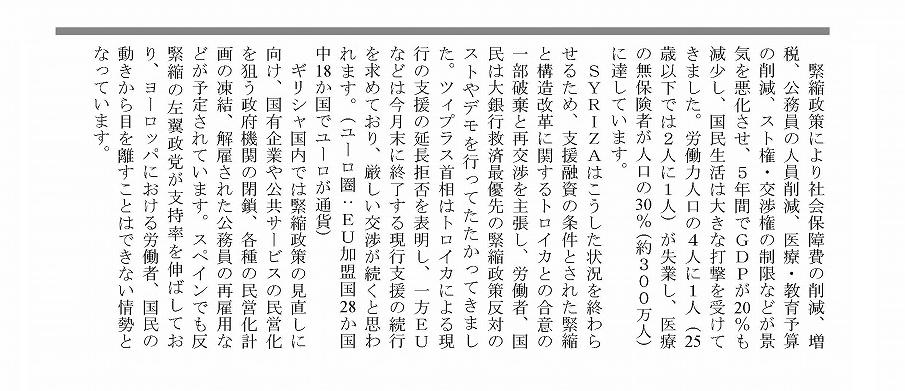 緊縮政策により社会保障費の削減、増
税、公務員の人員削減、医療・教育予算
の削減、スト権・交渉権の制限などが景
気を悪化させ、５年間でＧＤＰが20％も
減少し、国民生活は大きな打撃を受けて
きました。労働力人口の４人に１人（25
歳以下では２人に１人）が失業し、医療
の無保険者が人口の30％（約３００万人）
に達しています。
　ＳＹＲＩＺＡはこうした状況を終わら
せるため、支援融資の条件とされた緊縮
と構造改革に関するトロイカとの合意の
一部破棄と再交渉を主張し、労働者、国
民は大銀行救済最優先の緊縮政策反対の
ストやデモを行ってたたかってきまし
た。ツィプラス首相はトロイカによる現
行の支援の延長拒否を表明し、一方ＥＵ
などは今月末に終了する現行支援の続行
を求めており、厳しい交渉が続くと思わ
れます。（ユーロ圏：ＥＵ加盟国28か国
中18か国でユーロが通貨）
　ギリシャ国内では緊縮政策の見直しに
向け、国有企業や公共サービスの民営化
を狙う政府機関の閉鎖、各種の民営化計
画の凍結、解雇された公務員の再雇用な
どが予定されています。スペインでも反
緊縮の左翼政党が支持率を伸ばしてお
り、ヨーロッパにおける労働者、国民の
動きから目を離すことはできない情勢と
なっています。